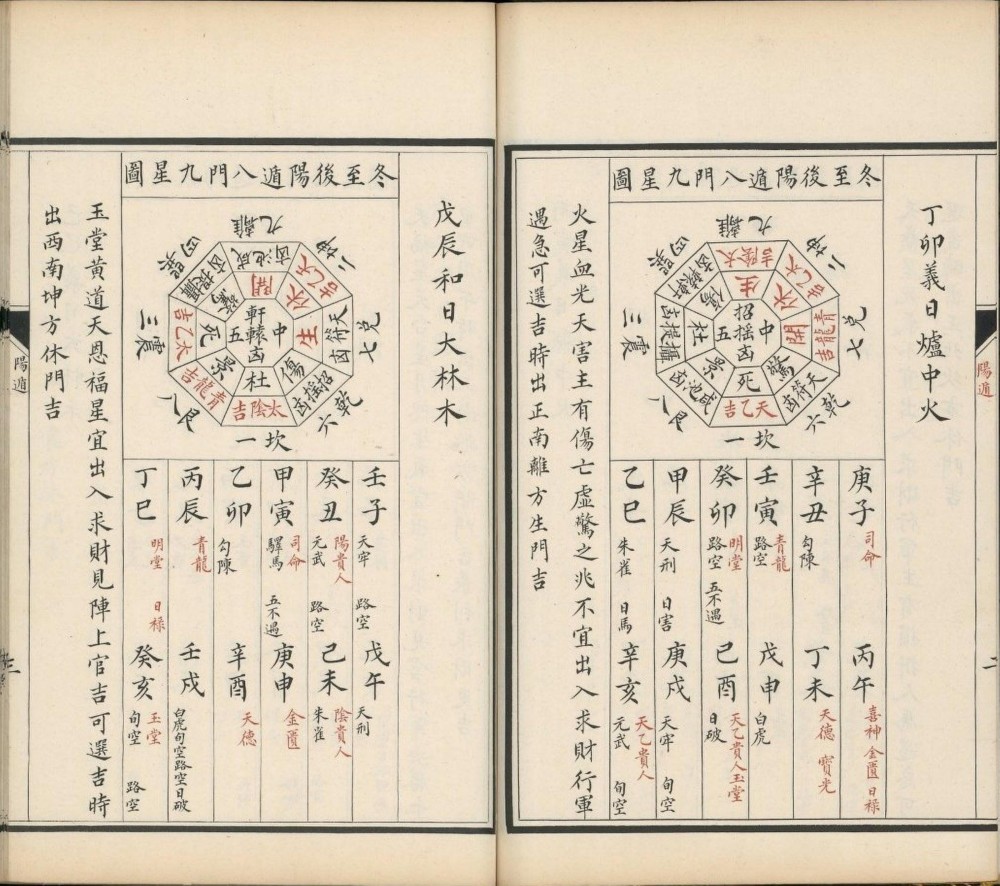 陽遁
二
丁卯義日爐中火
冬至後陽遁八門九星圖
九離
二坤
兌七
乾六
坎一
八艮
三震
四巽
太陰吉
太乙吉
青龍吉
天符凶
天乙吉
咸池凶
攝提凶
軒轅凶
生
休
開
驚
死
景
杜
傷
中五
招搖凶
庚子
司命
丙午
喜神 金匱 日祿
辛丑
勾陳
丁未
天德 寶光
壬寅
青龍
路空
戊申
白虎
癸卯
明堂
路空 五不遇
己酉
天乙貴人玉堂
日破
甲辰
天刑 日害
庚戌
天牢 旬空
乙巳
朱雀 日馬
辛亥
天乙貴人
元武 旬空
火星血光天害主有傷亡虛驚之兆不宜出入求財行軍
遇急可選吉時出正南離方生門吉
戊辰和日大林木
冬至後陽遁八門九星圖
九離
二坤
兌七
乾六
坎一
八艮
三震
四巽
咸池凶
太乙吉
天符凶
招搖凶
太陰吉
青龍吉
天乙吉
攝提凶
開
休
生
傷
杜
景
死
驚
中五
軒轅凶
壬子
天牢 路空
戊午
天刑
癸丑
陽貴人
元武 路空
己未
陰貴人
朱雀
甲寅
司命
驛馬 五不遇
庚申
金匱
乙卯
勾陳
辛酉
天德
丙辰
青龍
壬戌
白虎旬空路空日破
丁巳
明堂 日祿
癸亥
玉堂
旬空 路空
玉堂黃道天恩福星宜出入求財見陣上官吉可選吉時
出西南坤方休門吉
陽遁